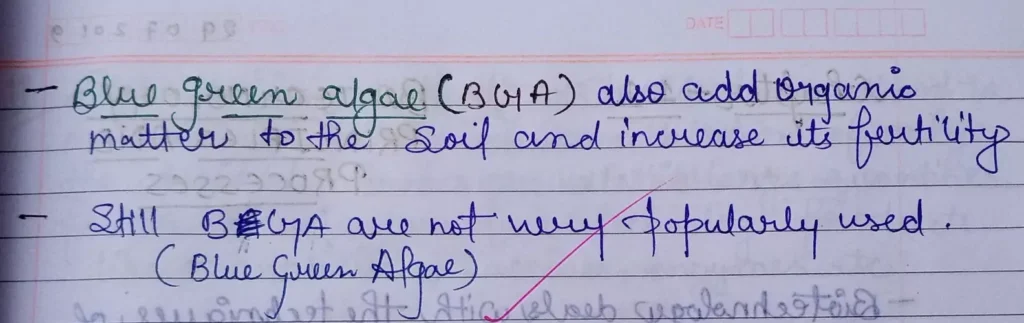 DATE
- Blue green algae (BGA) also add organic
matter to the soil and increase its fertility
- Still BGA are not very popularly used.
(Blue Green Algae)